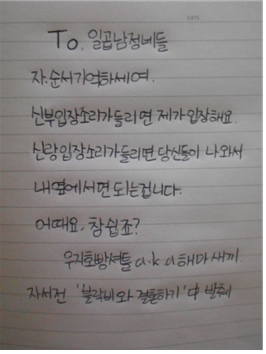 To. 일곱남정네들
자. 순서기억하세여.
신부입장소리가들리면 제가입장해요.
신랑입장소리가들리면 당신들이 나와서
내옆에서면되는겁니다.
어때요, 참쉽죠?
a.k.a 해마새끼
자서전 '블락비와결혼하기' 中 발췌